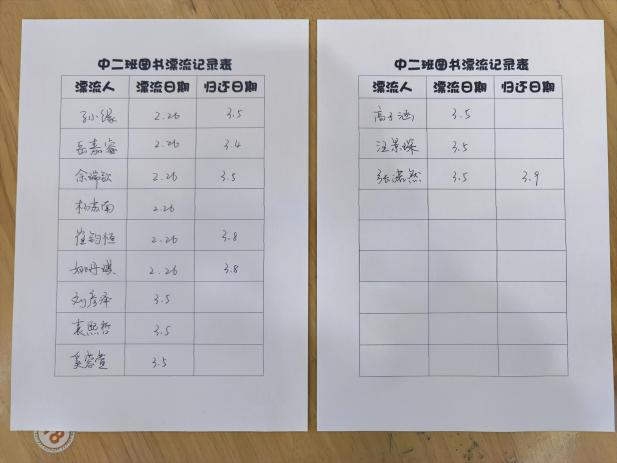 中二班图书漂流记录表
漂流人 漂流日期 归还日期
孙小缘 2.26 3.5
岳嘉睿 2.26 3.4
余瑞歆 2.26 3.5
杨志南 2.26
崔钧恒 2.26 3.8
姚丹祺 2.26 3.8
刘彦泽 3.5
袁熙哲 3.5
奚睿萱 3.5
中二班图书漂流记录表
漂流人 漂流日期 归还日期
高子涵 3.5
汪景琛 3.5
张潇然 3.5 3.9